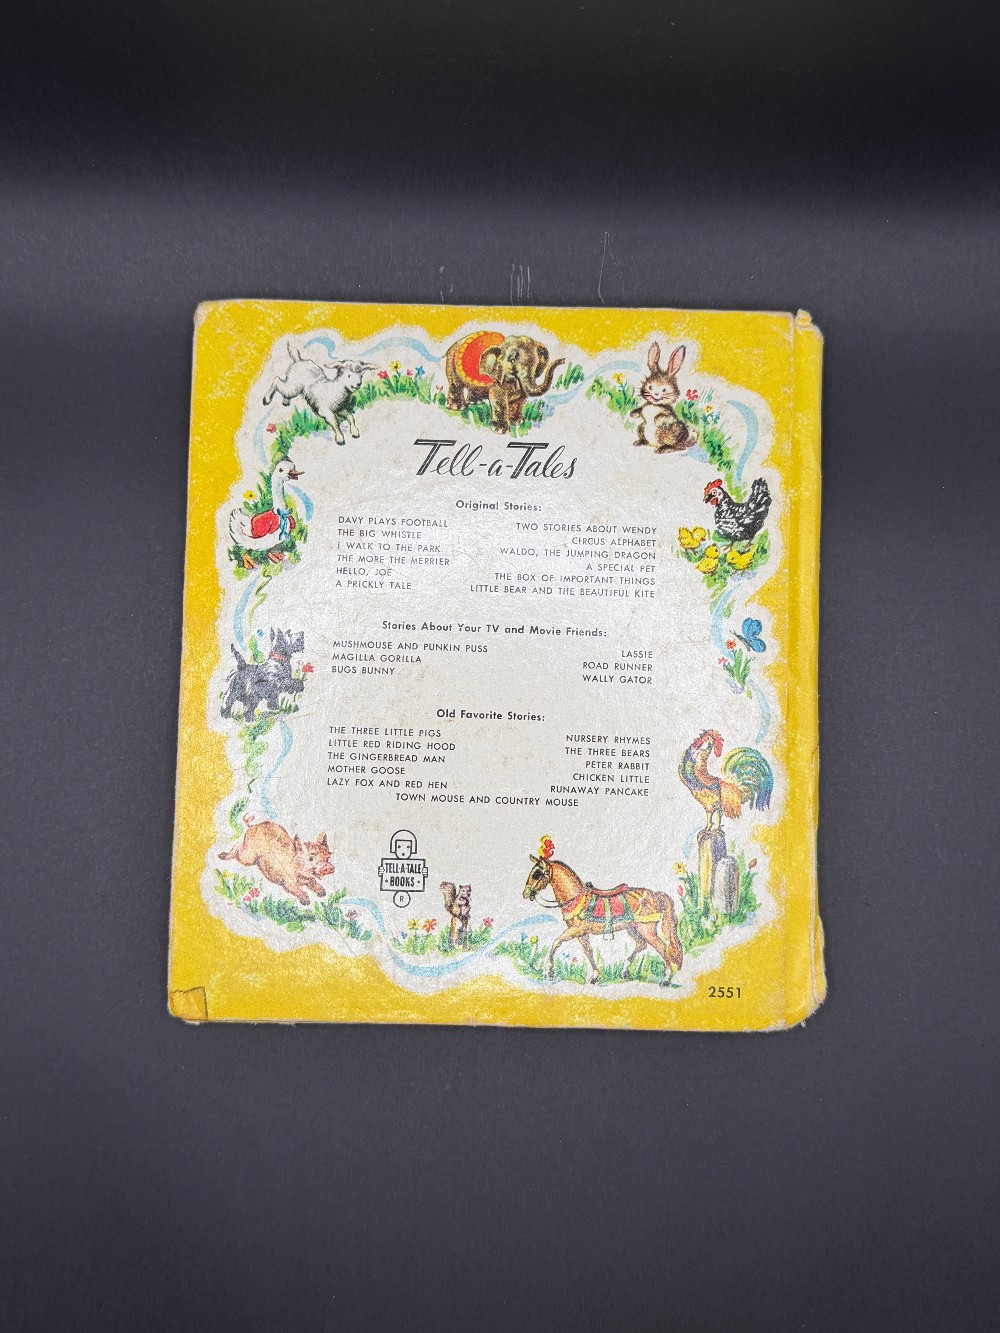 Tell-a-Tales
Original Stories:
DAVY PLAYS FOOTBALL
THE BIG WHISTLE
I WALK TO THE PARK
THE MORE THE MERRIER
HELLO, JOE
A PRICKLY TALE
TWO STORIES ABOUT WENDY
CIRCUS ALPHABET
WALDO, THE JUMPING DRAGON
A SPECIAL PET
THE BOX OF IMPORTANT THINGS
LITTLE BEAR AND THE BEAUTIFUL KITE
Stories About Your TV and Movie Friends:
MUSHMOUSE AND PUNKIN PUSS
MAGILLA GORILLA
BUGS BUNNY
LASSIE
ROAD RUNNER
WALLY GATOR
Old Favorite Stories:
THE THREE LITTLE PIGS
LITTLE RED RIDING HOOD
THE GINGERBREAD MAN
MOTHER GOOSE
LAZY FOX AND RED HEN
NURSERY RHYMES
THE THREE BEARS
PETER RABBIT
CHICKEN LITTLE
RUNAWAY PANCAKE
TOWN MOUSE AND COUNTRY MOUSE
TELL-A-TALE
BOOKS
R
2551